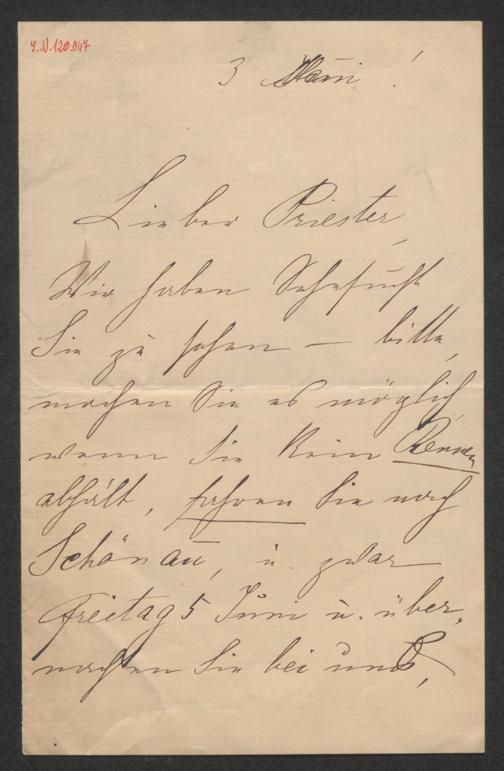 I.N.120.047
3 Juni !
Lieber Priester,
Wir haben Sehnsucht
Sie zu sehen – bitte,
machen Sie es möglich,
wenn Sie kein Rennen
abhält, fahren Sie nach
Schönau, u. zwar
Freitag 5 Juni u. über-
nachten Sie bei uns,